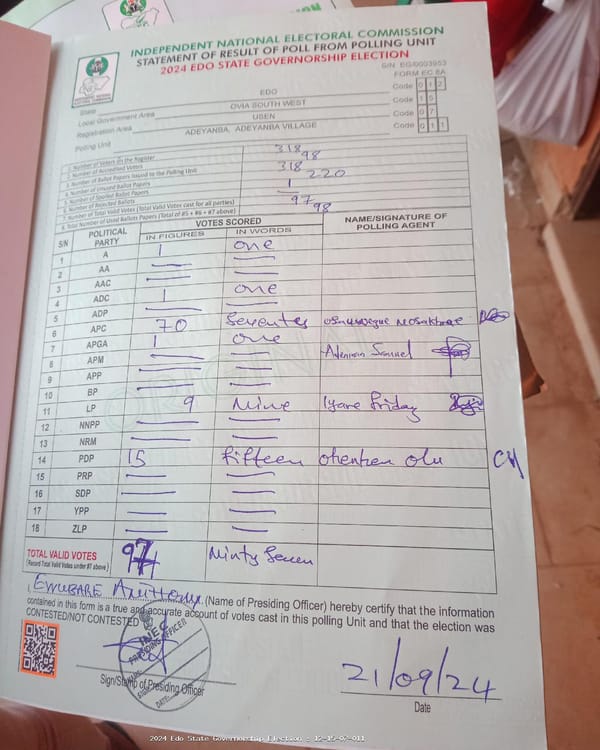 INDEPENDENT NATIONAL ELECTORAL COMMISSION
STATEMENT OF RESULT OF POLL FROM POLLING UNIT
2024 EDO STATE GOVERNORSHIP ELECTION
S/N EG/0003953
FORM EC 8A
State EDO Code 0 1 2
Local Government Area OVIA SOUTH WEST Code 1 5
Registration Area USEN Code 0 7
Polling Unit ADEYANBA, ADEYANBA VILLAGE Code 0 1 1
1. Number of Voters on the Register 318
2. Number of Accredited Voters 98
3. Number of Ballot Papers Issued to the Polling Unit 318
4. Number of Unused Ballot Papers 220
5. Number of Spoiled Ballot Papers —
6. Number of Rejected Ballots 1
7. Number of Total Valid Votes (Total Valid Votes cast for all parties) 97
8. Total Number of Used Ballots Papers (Total of #5 + #6 + #7 above) 98
S/N POLITICAL PARTY VOTES SCORED NAME/SIGNATURE OF POLLING AGENT
IN FIGURES IN WORDS
1 A 1 one
2 AA — —
3 AAC — —
4 ADC 1 one
5 ADP — —
6 APC 70 Seventes
7 APGA 1 one
8 APM — — Samuel
9 APP — —
10 BP — —
11 LP 9 Nine Iyare Friday
12 NNPP — —
13 NRM — —
14 PDP 15 fifteen ohenhen olu
15 PRP — —
16 SDP — —
17 YPP — —
18 ZLP — —
TOTAL VALID VOTES 97 Ninty Seven
(Record Total Valid Votes under #7 above)
I, EWUBARE Anithony (Name of Presiding Officer) hereby certify that the information
contained in this form is a true and accurate account of votes cast in this polling Unit and that the election was
CONTESTED/NOT CONTESTED
INEC
PRESIDING OFFICER
SIGN:
DATE:
Sign/Stamp of Presiding Officer
21/09/24
Date
2024 Edo State Governorship Election : 12-15-07-011